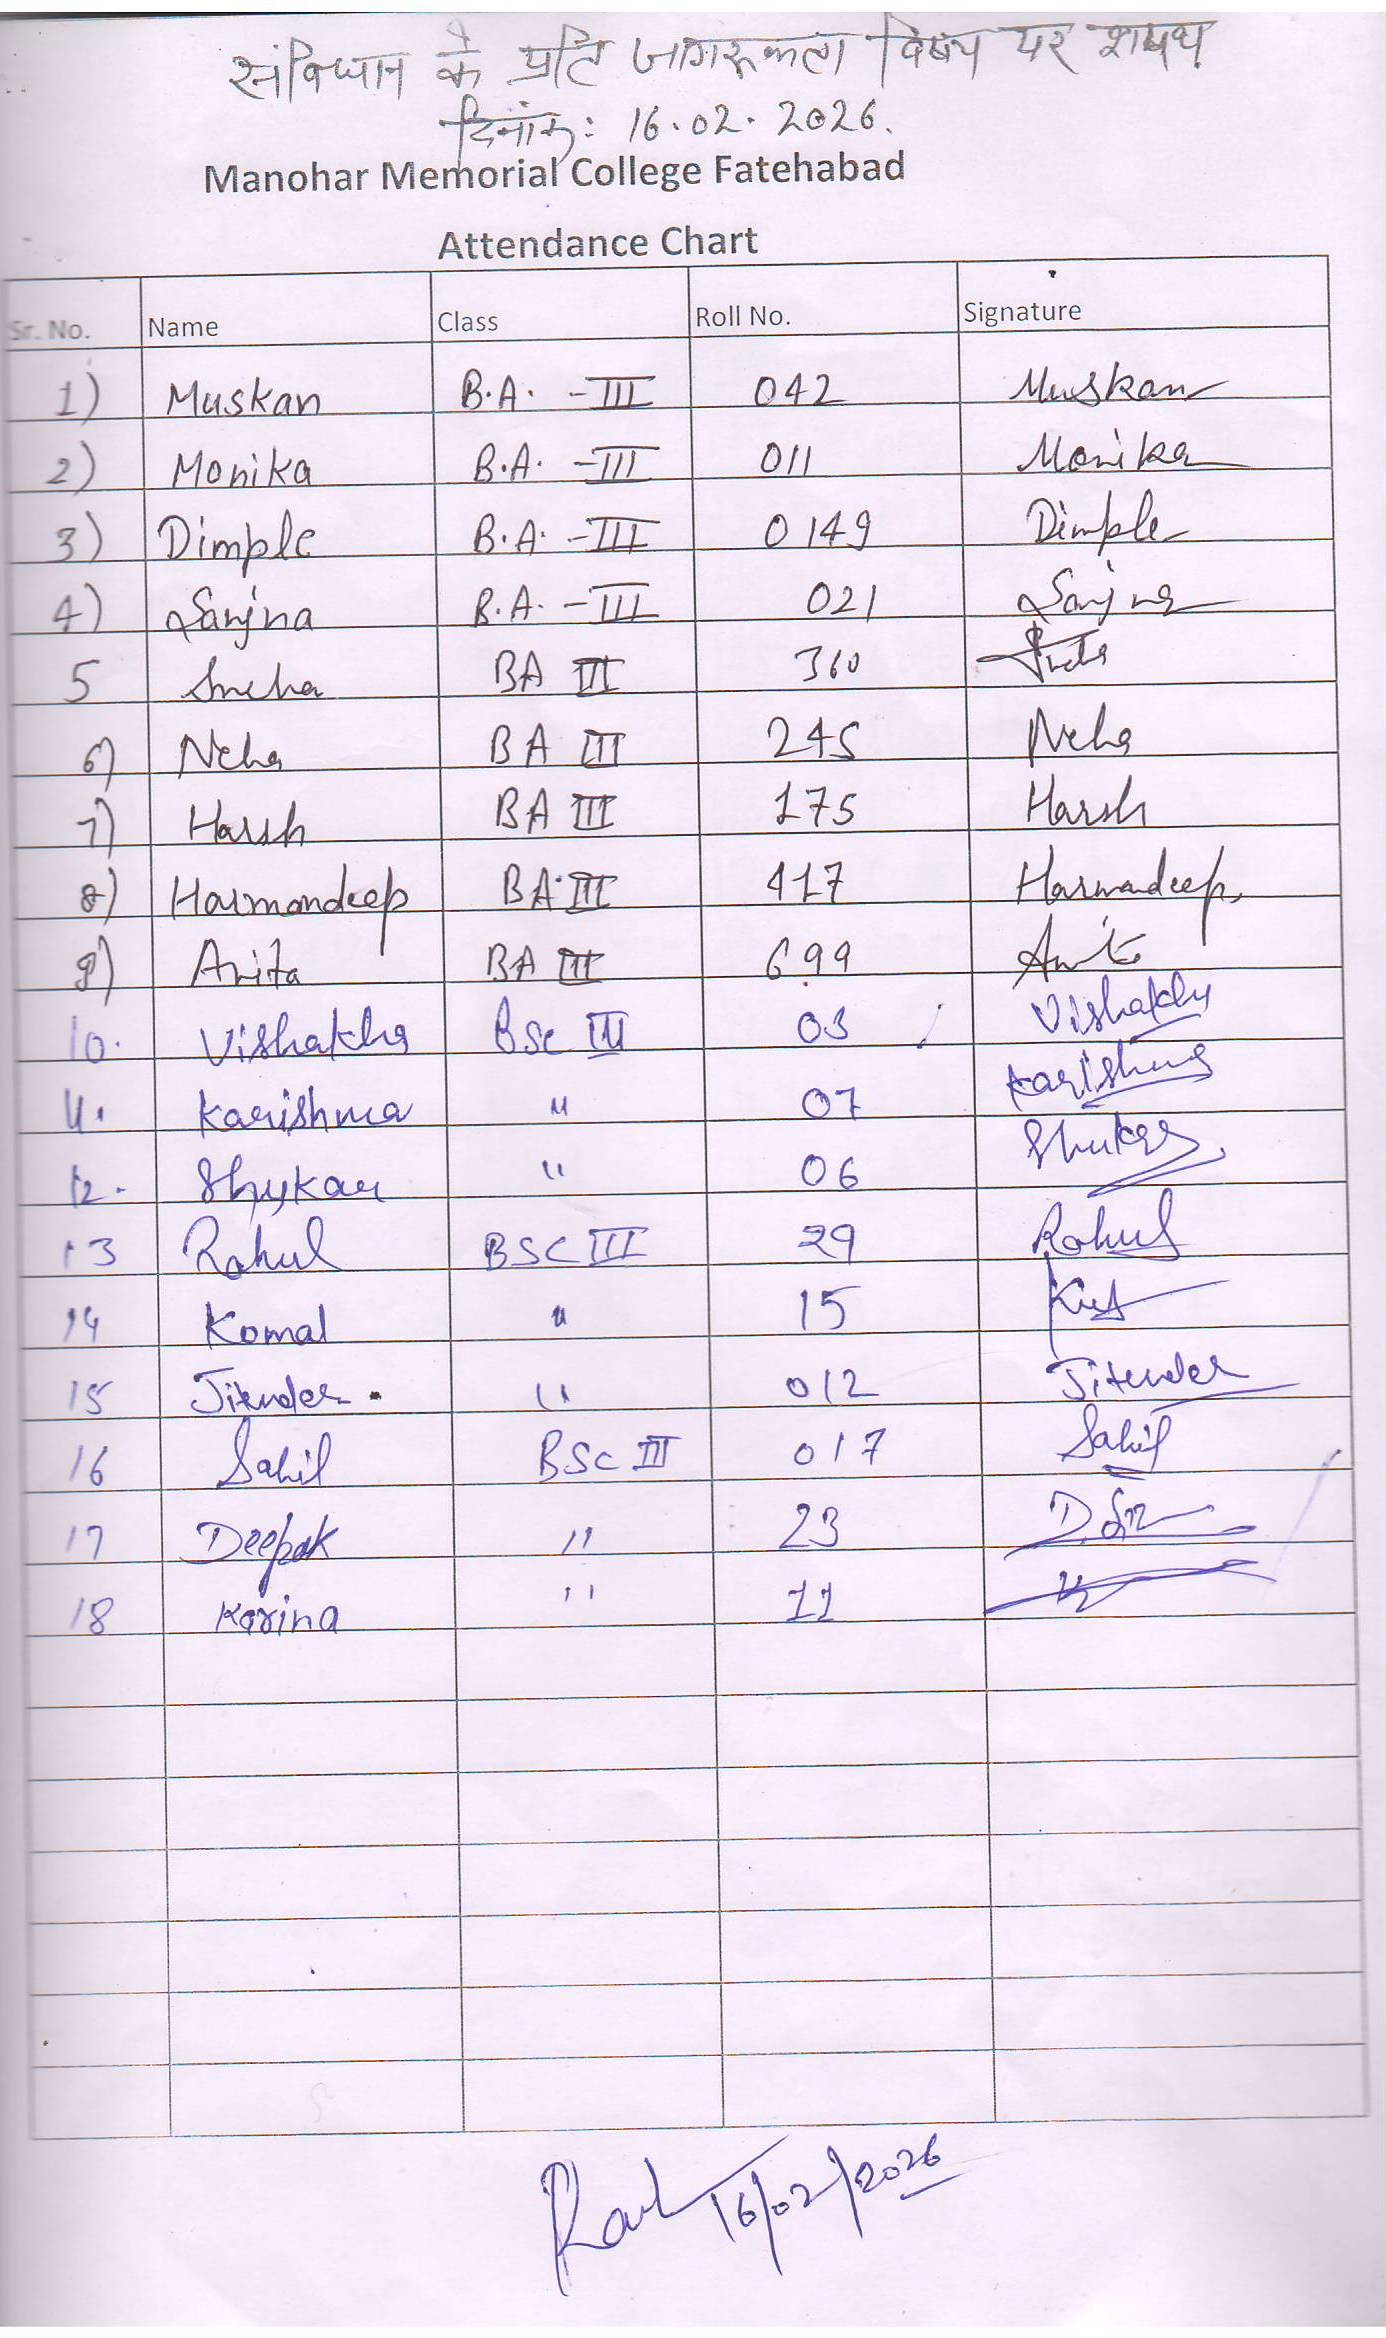 संविधान के प्रति जागरूकता विषय पर शपथ
दिनांक: 16.02.2026.
Manohar Memorial College Fatehabad
Attendance Chart
Sr. No. Name Class Roll No. Signature
1) Muskan B.A. - III 042 Muskan
2) Monika B.A. - III 011 Monika
3) Dimple B.A. - III 0149 Dimple
4) Sanjna B.A. - III 021 Sanjna
5 Sneha BA III 360
6) Neha BA III 245 Neha
7) Harsh BA III 175 Harsh
8) Harmandeep BA III 417 Harmandeep
9) Anita BA III 699 Anita
10. Vishakha BSc III 03 Vishakha
11. Karishma " 07 Karishma
12. " 06
13 Rahul BSC III 29 Rahul
14 Komal " 15
15 Jitender " 012 Jitender
16 Sahil BSc III 017 Sahil
17 Deepak " 23
18 Karina " 11
16/02/2026